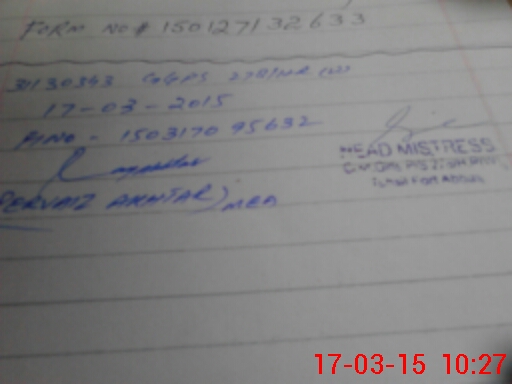 FORM NO# 150127132633
34130343 GGPS 278/HR (W)
17-03-2015
A/NO - 150317095632
(PERVAIZ AKHTAR) MEA
HEAD MISTRESS
Fort Abbas
17-03-15 10:27